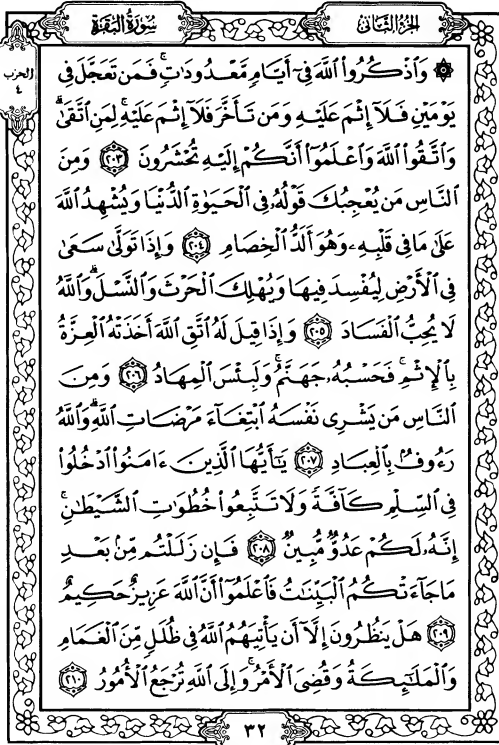 الجزء الثاني
سورة البقرة
الحزب
٤
۞ وَٱذْكُرُوا۟ ٱللَّهَ فِىٓ أَيَّامٍ مَّعْدُودَٰتٍ ۚ فَمَن تَعَجَّلَ فِى
يَوْمَيْنِ فَلَآ إِثْمَ عَلَيْهِ وَمَن تَأَخَّرَ فَلَآ إِثْمَ عَلَيْهِ ۚ لِمَنِ ٱتَّقَىٰ ۗ
وَٱتَّقُوا۟ ٱللَّهَ وَٱعْلَمُوٓا۟ أَنَّكُمْ إِلَيْهِ تُحْشَرُونَ ٢٠٣ وَمِنَ
ٱلنَّاسِ مَن يُعْجِبُكَ قَوْلُهُۥ فِى ٱلْحَيَوٰةِ ٱلدُّنْيَا وَيُشْهِدُ ٱللَّهَ
عَلَىٰ مَا فِى قَلْبِهِۦ وَهُوَ أَلَدُّ ٱلْخِصَامِ ٢٠٤ وَإِذَا تَوَلَّىٰ سَعَىٰ
فِى ٱلْأَرْضِ لِيُفْسِدَ فِيهَا وَيُهْلِكَ ٱلْحَرْثَ وَٱلنَّسْلَ ۗ وَٱللَّهُ
لَا يُحِبُّ ٱلْفَسَادَ ٢٠٥ وَإِذَا قِيلَ لَهُ ٱتَّقِ ٱللَّهَ أَخَذَتْهُ ٱلْعِزَّةُ
بِٱلْإِثْمِ ۚ فَحَسْبُهُۥ جَهَنَّمُ ۚ وَلَبِئْسَ ٱلْمِهَادُ ٢٠٦ وَمِنَ
ٱلنَّاسِ مَن يَشْرِى نَفْسَهُ ٱبْتِغَآءَ مَرْضَاتِ ٱللَّهِ ۗ وَٱللَّهُ
رَءُوفٌۢ بِٱلْعِبَادِ ٢٠٧ يَٰٓأَيُّهَا ٱلَّذِينَ ءَامَنُوا۟ ٱدْخُلُوا۟
فِى ٱلسِّلْمِ كَآفَّةً وَلَا تَتَّبِعُوا۟ خُطُوَٰتِ ٱلشَّيْطَٰنِ ۚ
إِنَّهُۥ لَكُمْ عَدُوٌّ مُّبِينٌ ٢٠٨ فَإِن زَلَلْتُم مِّنۢ بَعْدِ
مَا جَآءَتْكُمُ ٱلْبَيِّنَٰتُ فَٱعْلَمُوٓا۟ أَنَّ ٱللَّهَ عَزِيزٌ حَكِيمٌ
٢٠٩ هَلْ يَنظُرُونَ إِلَّآ أَن يَأْتِيَهُمُ ٱللَّهُ فِى ظُلَلٍ مِّنَ ٱلْغَمَامِ
وَٱلْمَلَٰٓئِكَةُ وَقُضِىَ ٱلْأَمْرُ ۚ وَإِلَى ٱللَّهِ تُرْجَعُ ٱلْأُمُورُ ٢١٠
٣٢